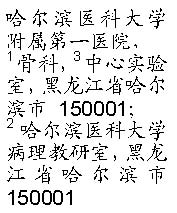 哈尔滨医科大学
附属第一医院,
¹骨科, ³中心实验
室, 黑龙江省哈尔
滨市 150001;
² 哈尔滨医科大学
病理教研室, 黑龙
江省哈尔滨市
150001